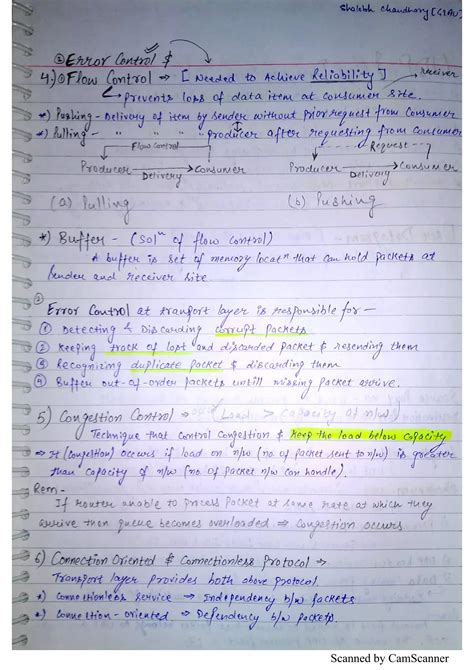 Shaibh chaudhary [GLAU]
② Error Control &
4.) ① Flow Control → [Needed to Achieve Reliability]
→ Prevents loss of data item at consumer site. receiver
*) Pushing - Delivery of item by sender without prior request from Consumer
*) Pulling - " " " " Producer after requesting from Consumer
Flow control Request
Producer → Consumer Producer → Consumer
Delivery Delivery
(a) Pulling (b) Pushing
*) Buffer - (Solⁿ of flow control)
A buffer is set of memory locatⁿ that can hold packets at
sender and receiver site
② Error Control at tranport layer is responsible for -
① Detecting & Discarding corrupt packets
② Keeping track of lost and discarded packet & resending them
③ Recognizing duplicate packet & discarding them
④ Buffer out-of-order packets untill missing packet arrive.
5) Congestion Control → (Load > Capacity of n/w)
Technique that control congestion & keep the load below capacity
→ It (congestion) occurs if load on n/w (no of packet sent to n/w) is greater
than capacity of n/w (no of packet n/w can handle).
Rem -
If router unable to process packet at same rate at which they
arrive then queue becomes overloaded ⇒ Congestion occurs.
6) Connection Oriented & Connectionless Protocol →
Transport layer provides both above protocol.
*) connectionless service → Independency b/w packets
*) connection - oriented → Dependency b/w packets.
Scanned by CamScanner